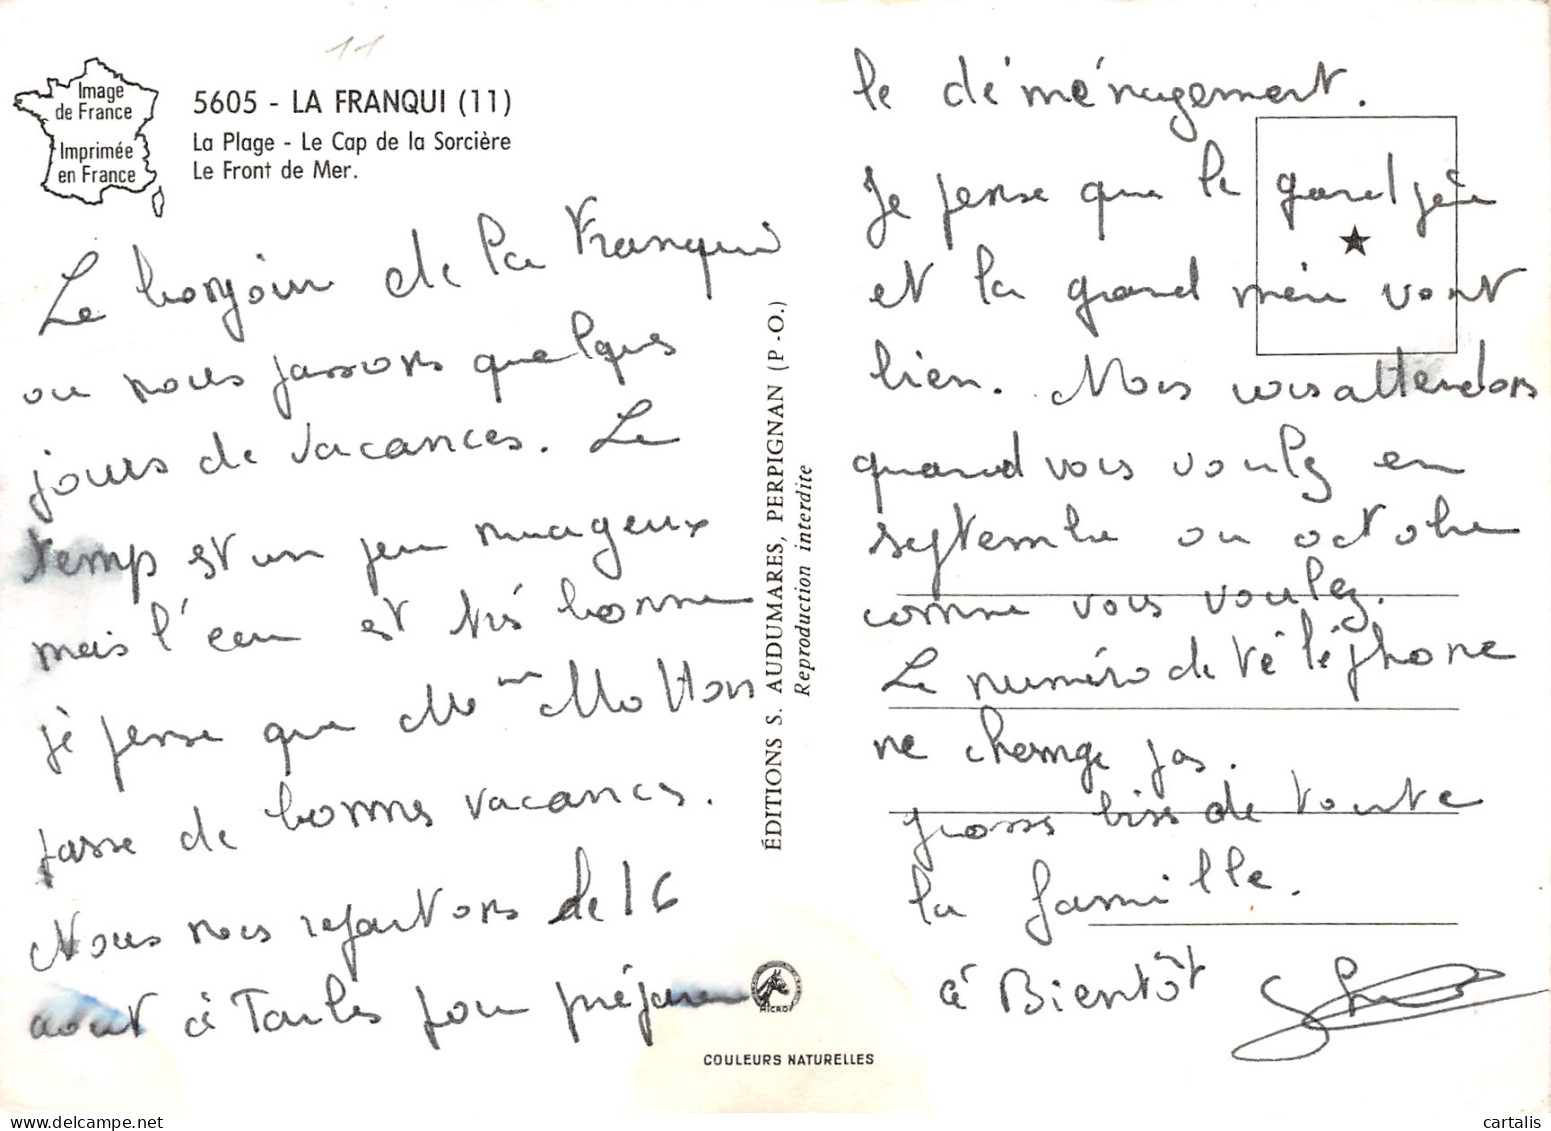 11
Image
de France
Imprimée
en France
5605 - LA FRANQUI (11)
La Plage - Le Cap de la Sorcière
Le Front de Mer.
Le bonjour de la Franqui
ou nous passons quelques
jours de vacances. Le
temps est un peu nuageux
mais l'eau est très bonne
je pense que Mme Motton
passe de bonnes vacances.
Nous nous repartons le 16
aout à pour préparer
ÉDITIONS S. AUDUMARES, PERPIGNAN (P.-O.)
Reproduction interdite
MICRO
COULEURS NATURELLES
le déménagement.
Je pense que le grand père
et la grand mère vont
bien. Nous vous attendons
quand vous voulez en
septembre ou octobre
comme vous voulez.
Le numéro de téléphone
ne change pas.
grosses bises de toute
la famille.
à Bientôt
cartalis